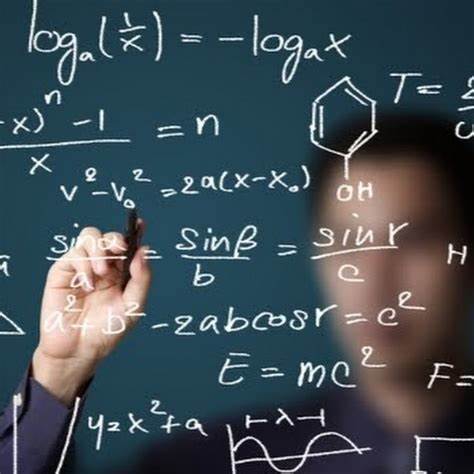 logₐ(1/x) = -logₐx
T= 2
x)ⁿ -1 / x = n
v² - v₀² = 2a(x-x₀)
OH
sinα / a = sinβ / b = sinr / c
H
a² + b² - 2abcosr = c²
E = mc²
F=
y = x² + a
⊢ λ ⊣